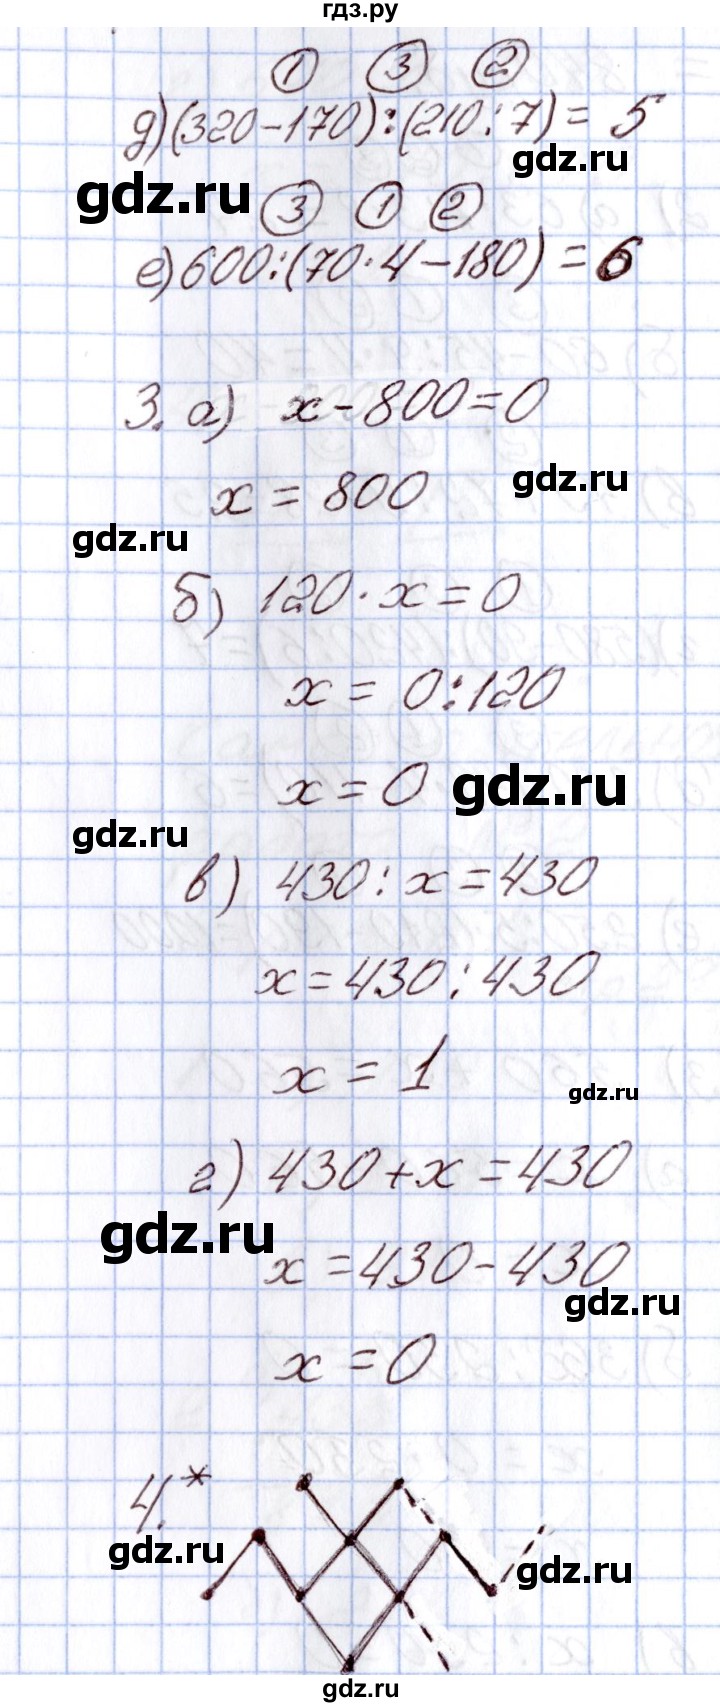 гдз.ру
1 3 2
д) (320-170):(210:7)= 5
gdz.ru
gdz.ru
3 1 2
е) 600:(70·4-180)=6
3. а) x-800=0
x=800
gdz.ru
gdz.ru
б) 120·x=0
x=0:120
x=0
gdz.ru
gdz.ru
в) 430:x=430
x=430:430
x=1
gdz.ru
г) 430+x=430
gdz.ru
x=430-430
gdz.ru
x=0
4.*
gdz.ru
gdz.ru
gdz.ru